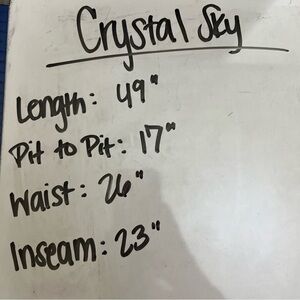 Crystal Sky
Length: 49"
Pit to Pit: 17"
Waist: 26"
Inseam: 23"